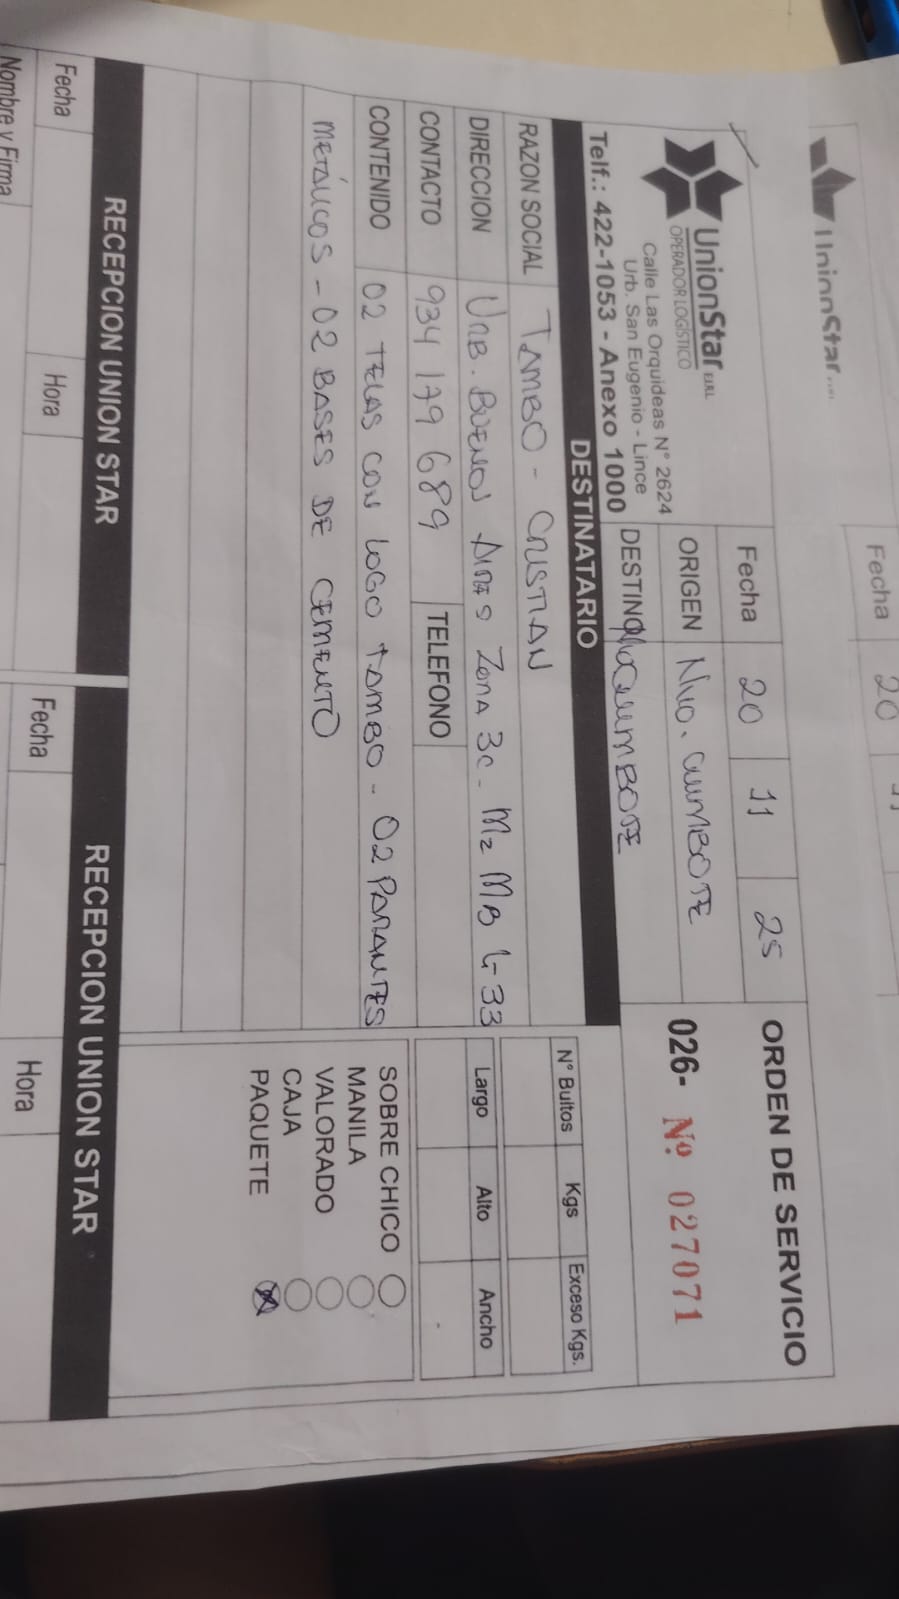 UnionStar
Fecha 20
UnionStar E.I.R.L
OPERADOR LOGÍSTICO
Calle Las Orquideas N° 2624
Urb. San Eugenio - Lince
Telf.: 422-1053 - Anexo 1000
Fecha 20 11 25
ORIGEN Nvo. CHIMBOTE
DESTINO Nvo CHIMBOTE
ORDEN DE SERVICIO
026- Nº 027071
DESTINATARIO
RAZON SOCIAL TAMBO - CRISTIAN
DIRECCION URB. BUENOS AIRES ZONA 3C - Mz MB L-33
CONTACTO 934 179 689 TELEFONO
CONTENIDO 02 TELAS CON LOGO TAMBO - 02 PARANTES
METÁLICOS - 02 BASES DE CEMENTO
N° Bultos Kgs Exceso Kgs.
Largo Alto Ancho
SOBRE CHICO
MANILA
VALORADO
CAJA
PAQUETE X
RECEPCION UNION STAR
Fecha Hora
Nombre y Firma
RECEPCION UNION STAR
Fecha Hora